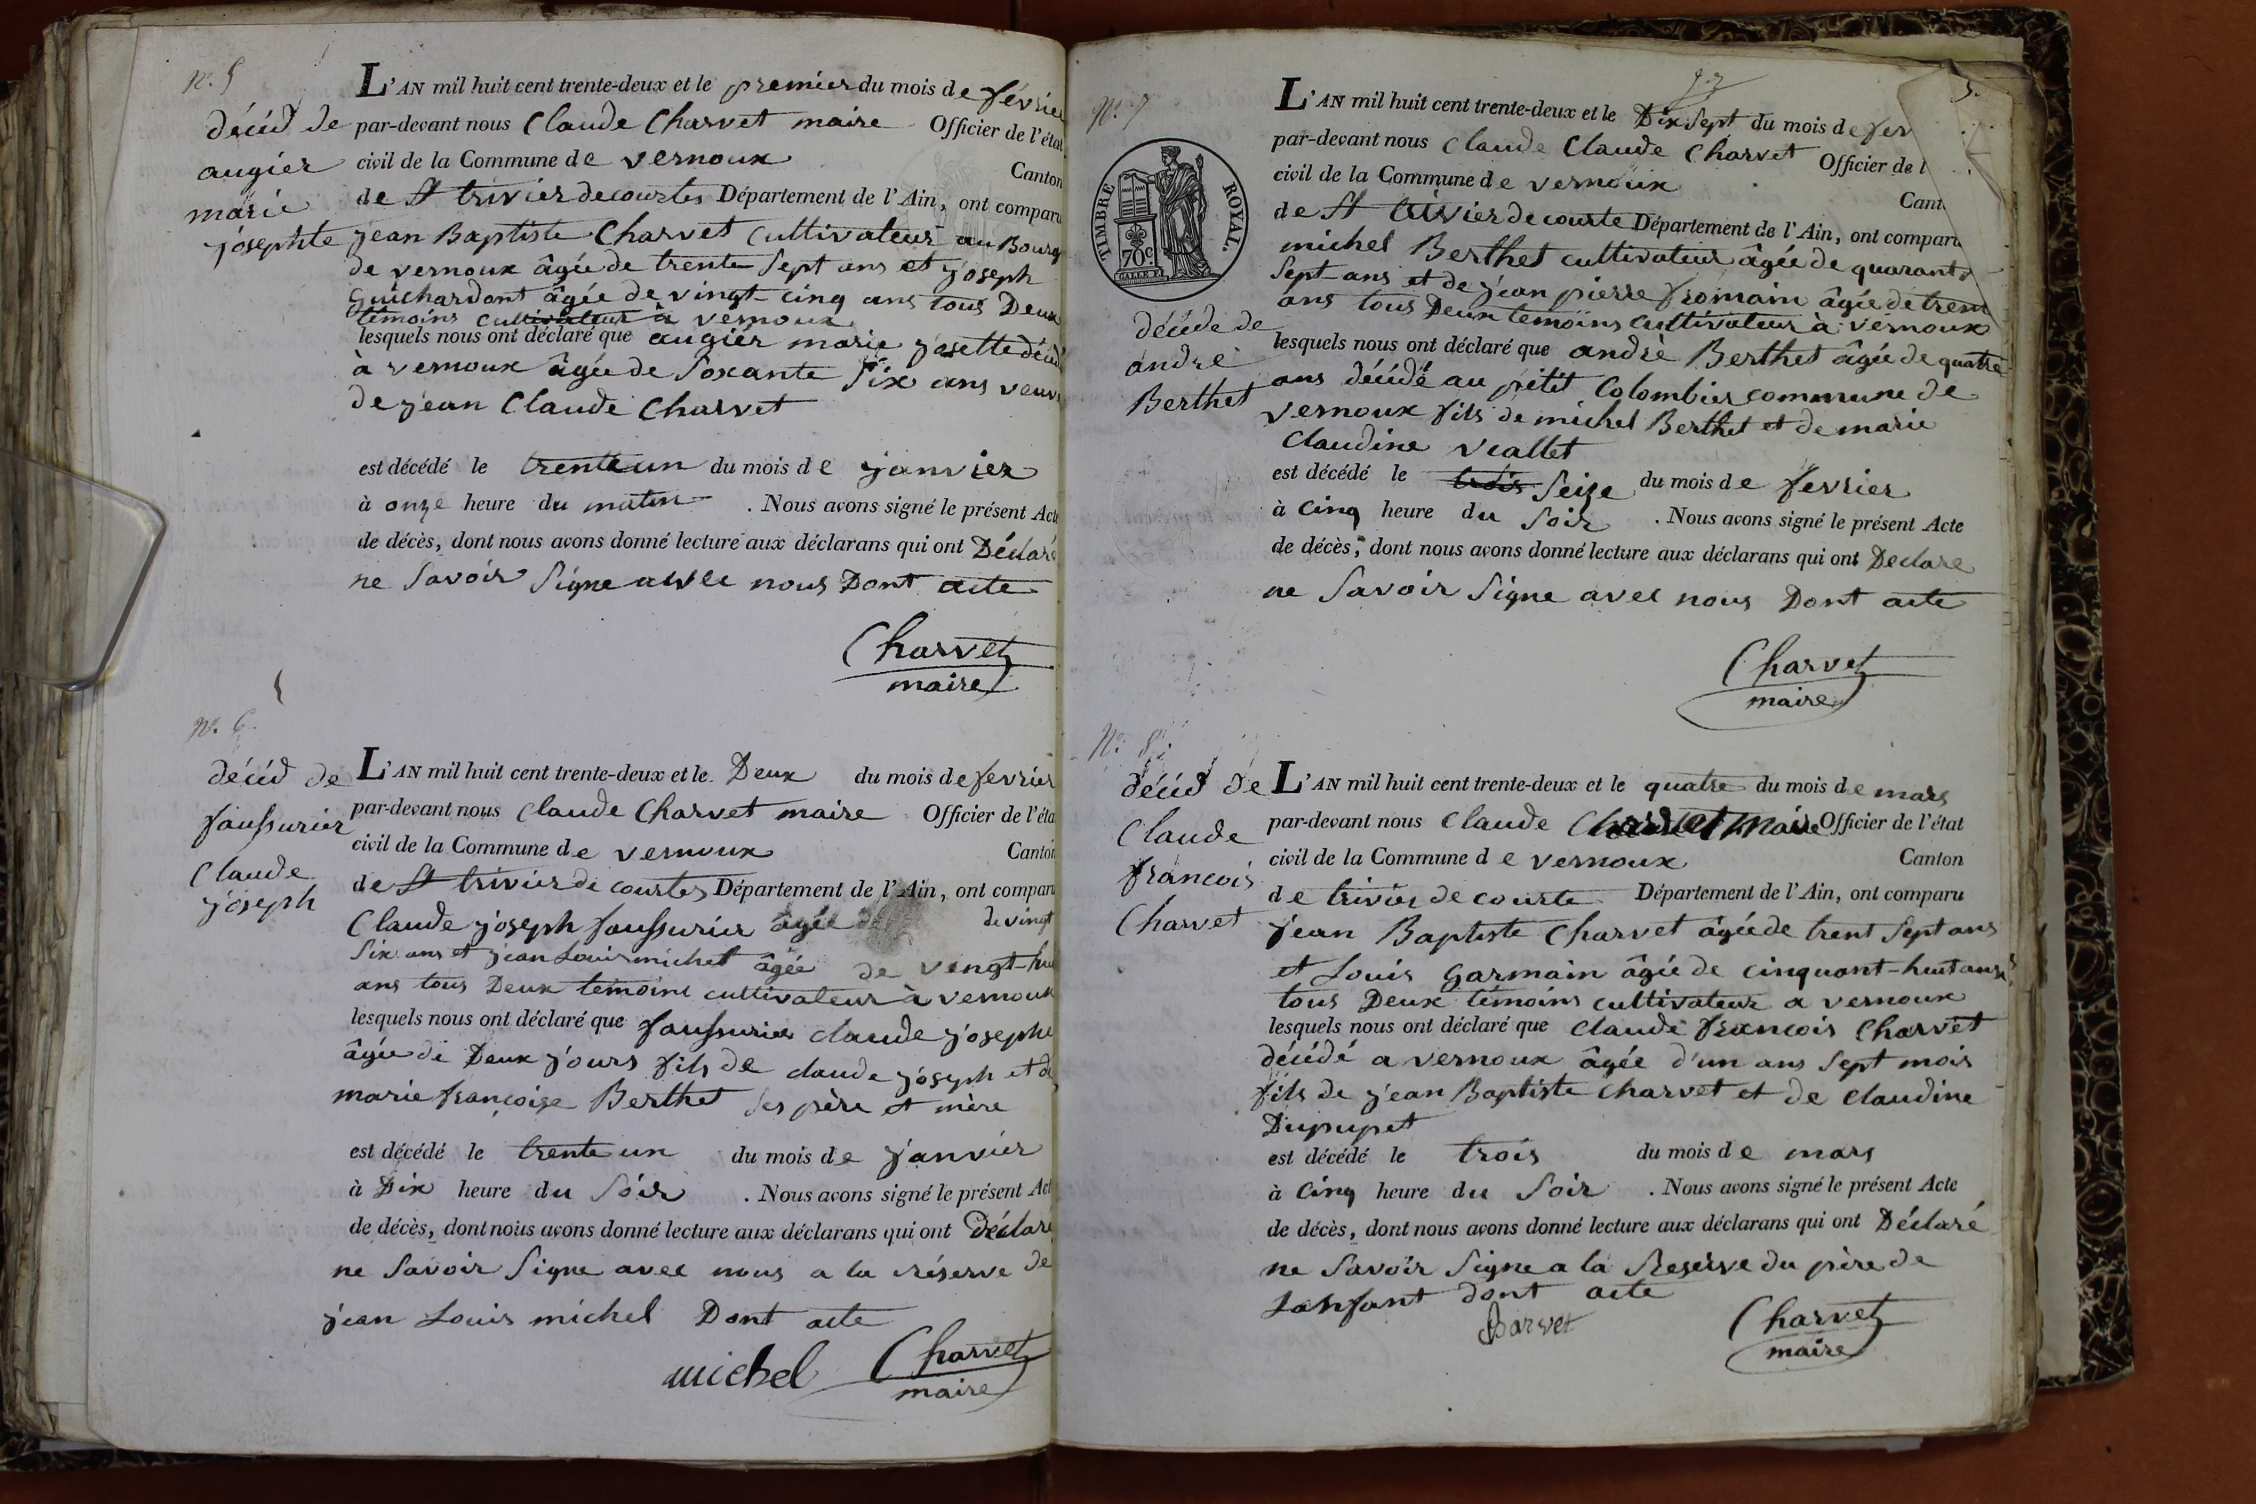 N. 5
décéd de
augier
marie
josephte
L'AN mil huit cent trente-deux et le premier du mois de février
par-devant nous Claude Charvet maire Officier de l'état
civil de la Commune de vernoux Canton
de St triviers de courtes Département de l'Ain, ont comparu
jean Baptiste Charvet cultivateur au Bourg
de vernoux âgée de trente Sept ans et joseph
Guichardont âgée de vingt-cinq ans tous Deux
témoins cultivateur à vernoux
lesquels nous ont déclaré que augier marie josette décéd
à vernoux âgée de Soxante Six ans veuve
de jean Claude Charvet
est décédé le trente un du mois de janvier
à onze heure du matin . Nous avons signé le présent Acte
de décès, dont nous avons donné lecture aux déclarans qui ont Déclaré
ne Savoir Signe avec nous Dont acte
Charvet
maire
N. 6
décéd de
faussurier
Claude
joseph
L'AN mil huit cent trente-deux et le Deux du mois de fevrier
par-devant nous Claude Charvet maire Officier de l'éta
civil de la Commune de vernoux Canton
de St trivier de courtes Département de l'Ain, ont comparu
Claude joseph faussurier âgée de de vingt
Six ans et jean Louis michel âgée de vingt-hui
ans tous Deux témoins cultivateur à vernoux
lesquels nous ont déclaré que faussurier claude josephe
âgée de Deux jours fils de claude joseph et de
marie françoise Berthet Ses père et mère
est décédé le trente un du mois de janvier
à Dix heure du Soir . Nous avons signé le présent Act
de décès, dont nous avons donné lecture aux déclarans qui ont Déclaré
ne Savoir Signe avec nous a la réserve de
jean Louis michel Dont acte
michel Charvet
maire
5.
N. 7
TIMBRE ROYAL.
70c.
décéde de
andré
Berthet
L'AN mil huit cent trente-deux et le Dix Sept du mois de fev
par-devant nous Claude Claude Charvet Officier de l
civil de la Commune de vernoux Cant
de St trivier de courte Département de l'Ain, ont comparu
michel Berthet cultivateur âgée de quarante
Sept ans et de jean pierre fromain âgée de trent
ans tous Deux temoins cultivateur à vernoux
lesquels nous ont déclaré que andrè Berthet âgée de quatre
ans décédé au pétit Colombier commune de
vernoux fils de michel Berthet et de marie
Claudine viallet
est décédé le trois Seize du mois de fevrier
à Cinq heure du Soir . Nous avons signé le présent Acte
de décès, dont nous avons donné lecture aux déclarans qui ont Declare
ne Savoir Signe avec nous Dont acte
Charvet
maire
N. 8
décéd de
Claude
françois
Charvet
L'AN mil huit cent trente-deux et le quatre du mois de mars
par-devant nous Claude Charvet Maire Officier de l'état
civil de la Commune de vernoux Canton
de trivier de courte Département de l'Ain, ont comparu
jean Baptiste Charvet âgée de trent Sept ans
et Louis Garmain âgée de cinquant-huit ans
tous Deux témoins cultivateur a vernoux
lesquels nous ont déclaré que Claude françois Charvet
décédé a vernoux âgée d'un ans Sept mois
fils de jean Baptiste Charvet et de Claudine
Dupupet
est décédé le trois du mois de mars
à Cinq heure du Soir . Nous avons signé le présent Acte
de décès, dont nous avons donné lecture aux déclarans qui ont Déclaré
ne Savoir Signe a la Reserve du père de
Lanfant dont acte
Charvet Charvet
maire